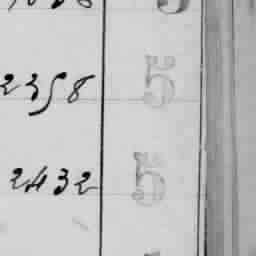 2358 5
2432 5